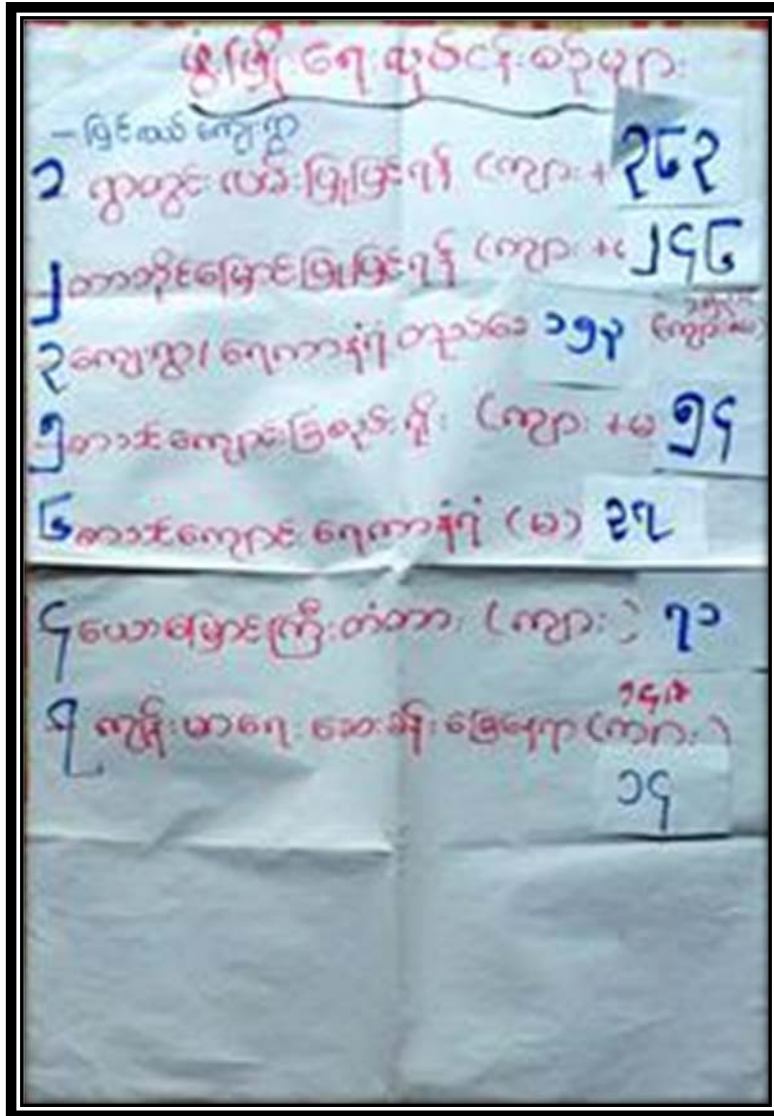 ဖွံ့ဖြိုးရေးလုပ်ငန်းစဉ်များ
– ပြင်ကယ် ကျေးရွာ
၁ ရွာတွင်းလမ်းပြုပြင်ရန် (ကျား + ၃၆၃
၂ တာတိုင်မြောင်းပြုပြင်ရန် (ကျား + ၂၄၆
၃ ကျေးရွာ၊ ရေကာနံရံ တူသဒေ ၁၅၃ (ကျား+မ)
၅ စာသင်ကျောင်းခြံစည်းရိုး (ကျား +မ ၅၄
၆ စာသင်ကျောင်း ရေကာနံရံ (မ) ၃၇
၄ ယောမြောင်ကြီးတံတား (ကျား) ၇၁
၇ ကျန်းမာရေး ဆေးခန်း မြေနေရာ (ကျား)
၁၄